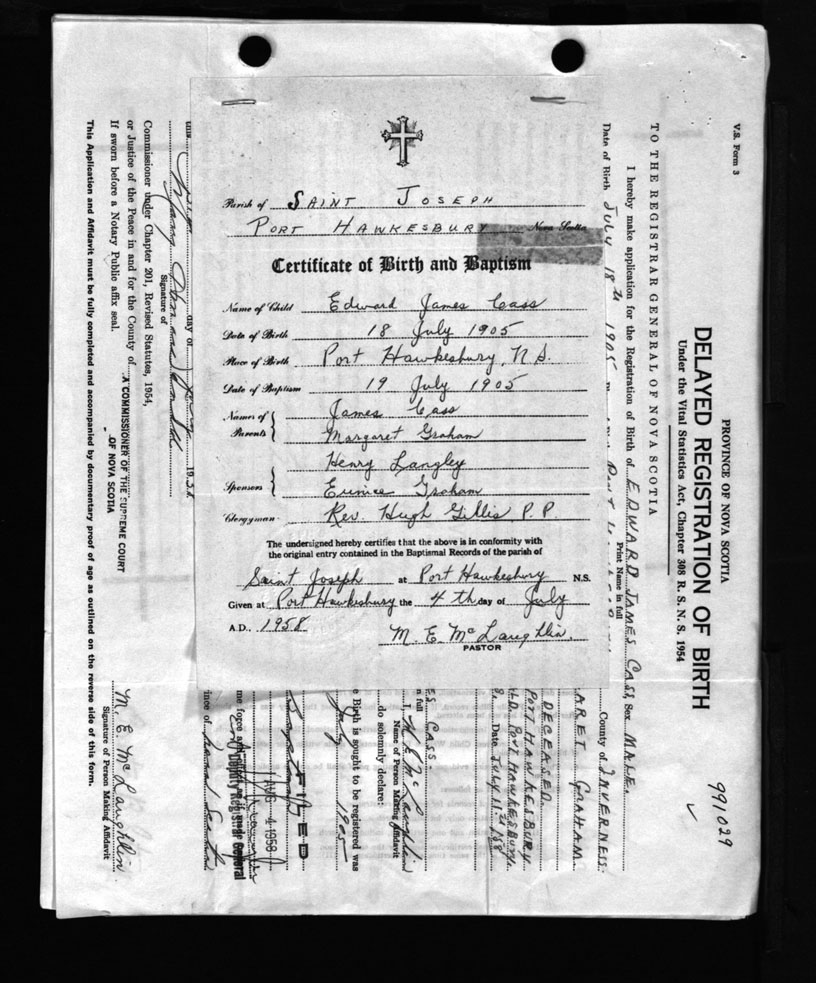 Parish of SAINT JOSEPH
PORT HAWKESBURY Nova Scotia
Certificate of Birth and Baptism
Name of Child Edward James Cass
Date of Birth 18 July 1905
Place of Birth Port Hawkesbury, N.S.
Date of Baptism 19 July 1905
Names of Parents James Cass
Margaret Graham
Sponsors Henry Langley
Eunice Graham
Clergyman Rev. Hugh Gillis P.P.
The undersigned hereby certifies that the above is in conformity with
the original entry contained in the Baptismal Records of the parish of
Saint Joseph at Port Hawkesbury N.S.
Given at Port Hawkesbury the 4th day of July
A.D., 1958 M. E. McLaughlin.
PASTOR
V.S. Form 3
991029
PROVINCE OF NOVA SCOTIA
DELAYED REGISTRATION OF BIRTH
Under the Vital Statistics Act, Chapter 308 R. S. N. S. 1954
TO THE REGISTRAR GENERAL OF NOVA SCOTIA
I hereby make application for the Registration of Birth of EDWARD JAMES CASS, Sex MALE.
Print Name in full
Date of Birth JULY 18th 1905
County of INVERNESS.
ARET GRAHAM.
DECEASED.
PORT HAWKESBURY
PORT HAWKESBURY.
Date JULY 11th/58
ES CASS.
n full
I, M. E. McLaughlin
Name of Person Making Affidavit
do solemnly declare:
e Birth is sought to be registered was
July 1905
FILED
AUG 4 1958
Deputy Registrar General
me force
ince of Nova Scotia
day of July 1958
Signature of
Commissioner under Chapter 201, Revised Statutes, 1954,
or Justice of the Peace in and for the County of
A COMMISSIONER OF THE SUPREME COURT
OF NOVA SCOTIA
If sworn before a Notary Public affix seal.
M. E. McLaughlin
Signature of Person Making Affidavit
This Application and Affidavit must be fully completed and accompanied by documentary proof of age as outlined on the reverse side of this form.